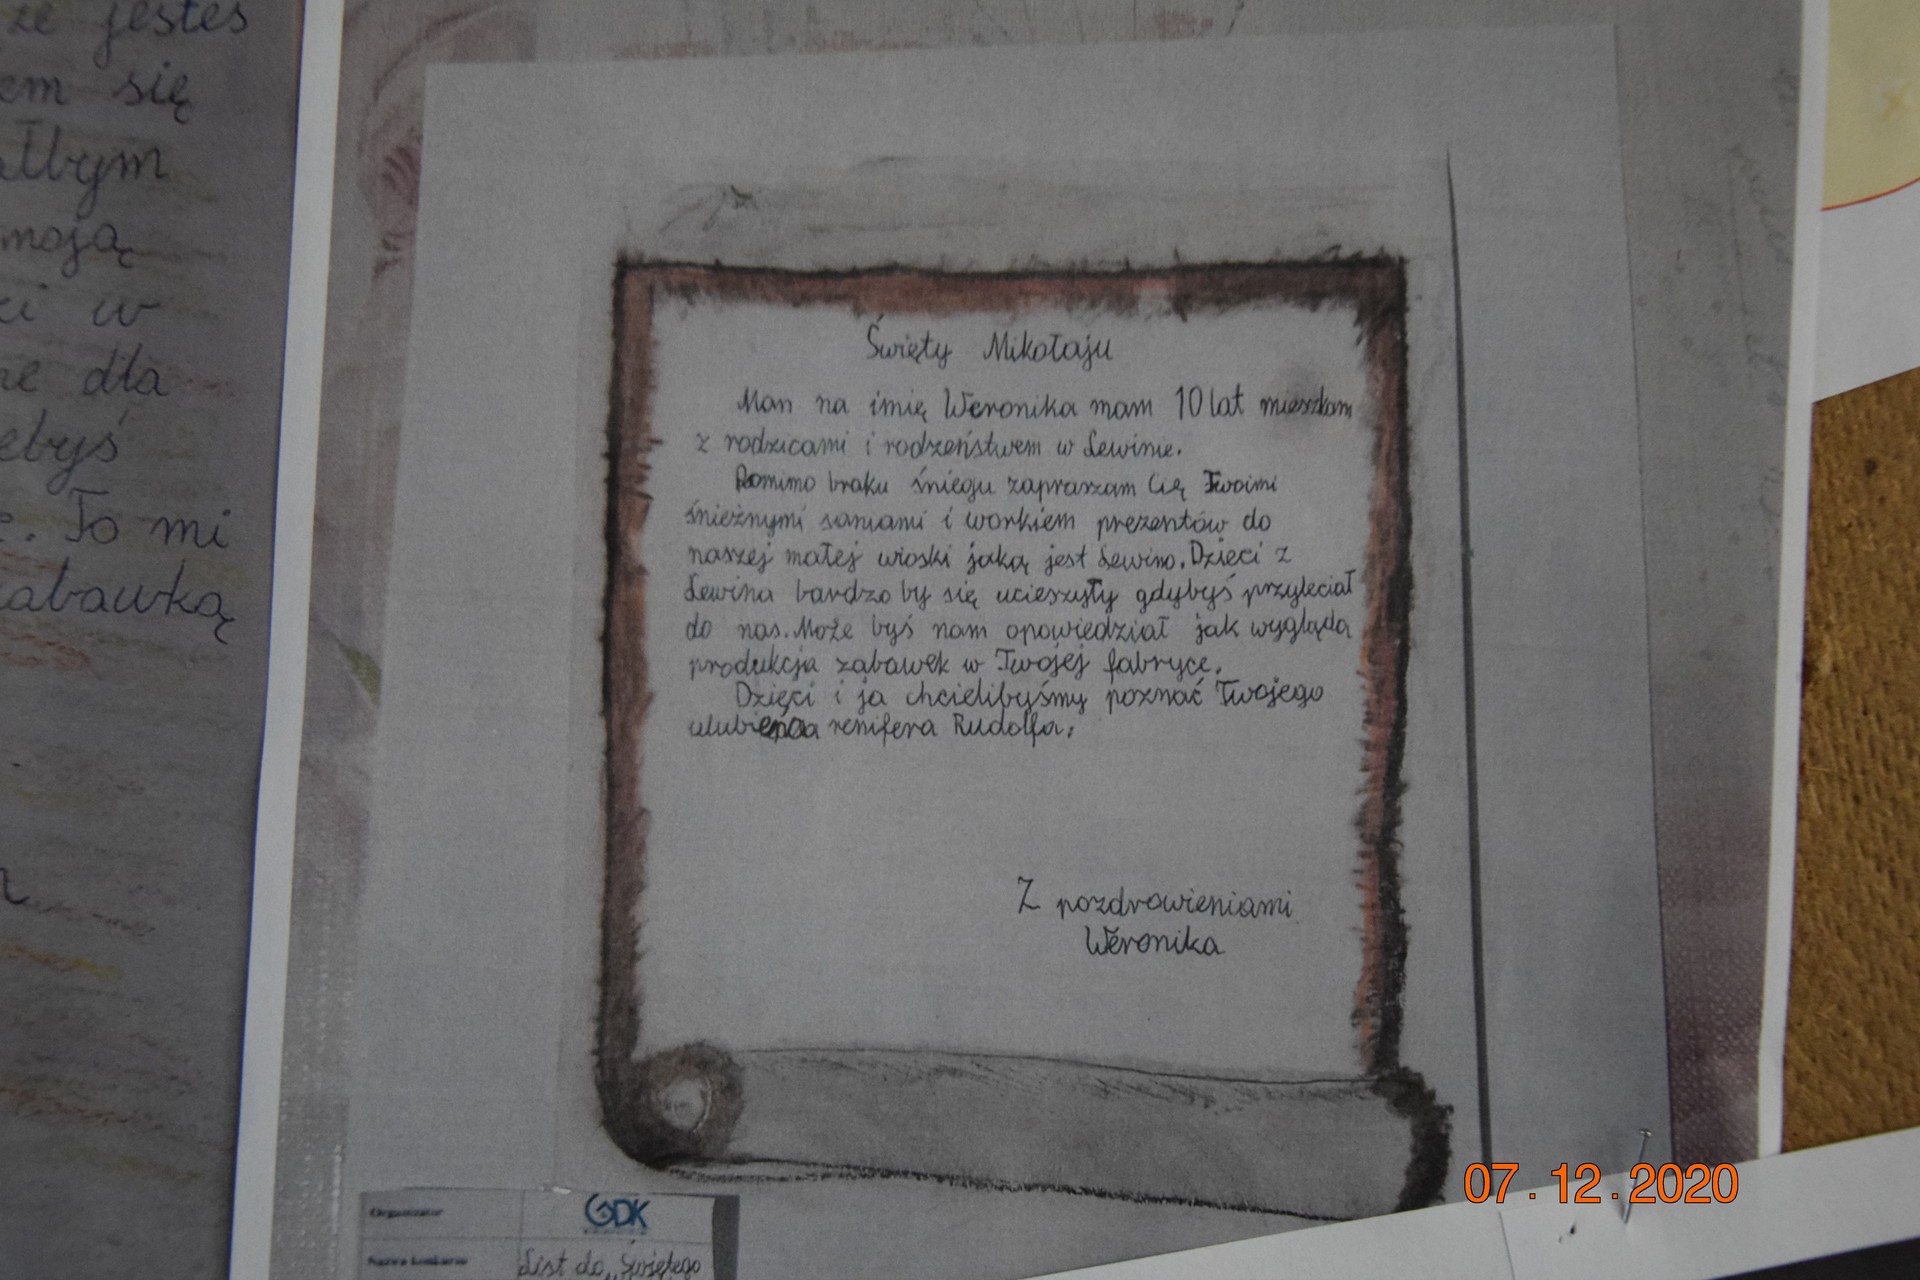 że jesteś
em się
ałbym
moją
ci w
ne dla
ebyś
. To mi
zabawką
Święty Mikołaju
Mam na imię Weronika mam 10 lat mieszkam
z rodzicami i rodzeństwem w Lewinie.
Pomimo braku śniegu zapraszam Cię Twoimi
śnieżnymi saniami i workiem prezentów do
naszej małej wioski jaką jest Lewino. Dzieci z
Lewina bardzo by się ucieszyły gdybyś przyleciał
do nas. Może byś nam opowiedział jak wygląda
produkcja zabawek w Twojej fabryce.
Dzieci i ja chcielibyśmy poznać Twojego
renifera Rudolfa.
Z pozdrowieniami
Weronika
Organizator GDK
Nazwa konkursu List do „Świętego
07.12.2020